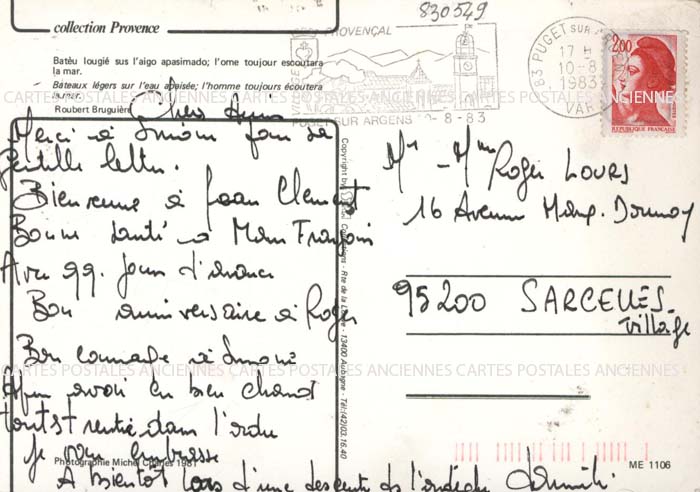 collection Provence
Batèu lougié sus l'aigo apasimado; l'ome toujour escoutara
la mar.
Bateaux légers sur l'eau apaisée; l'homme toujours écoutera
la mer.
Roubert Bruguière
Chers Amis
Merci à Simone pour sa
gentille lettre.
Bienvenue à Jean Clement
Bonne santé à Mam François
Avec qq. jours d'avance
Bon anniversaire à Roger
Bon courage à Simone
Après avoir eu bien chaud
tout est rentré dans l'ordre
je vous embrasse
A Bientôt lors d'une descente de l'ardèche
Photographie Michel 1981
Copyright by Collections - Rte de la - 13400 Aubagne - Tél:(42)03.16.40
830549
PROVENÇAL
PUGET SUR ARGENS 10-8-83
83 PUGET SUR
17 H
10-8
1983
VAR
2,00
POSTES
REPUBLIQUE FRANÇAISE
Mr - Mme Roger LOURS
16 Avenue Marx. Dormoy
95200 SARCELLES
village
ME 1106
CARTES POSTALES ANCIENNES CARTES POSTALES ANCIENNES CARTES POSTALES ANCIENNES
CARTES POSTALES ANCIENNES CARTES POSTALES ANCIENNES CARTES POSTALES ANCIENNES